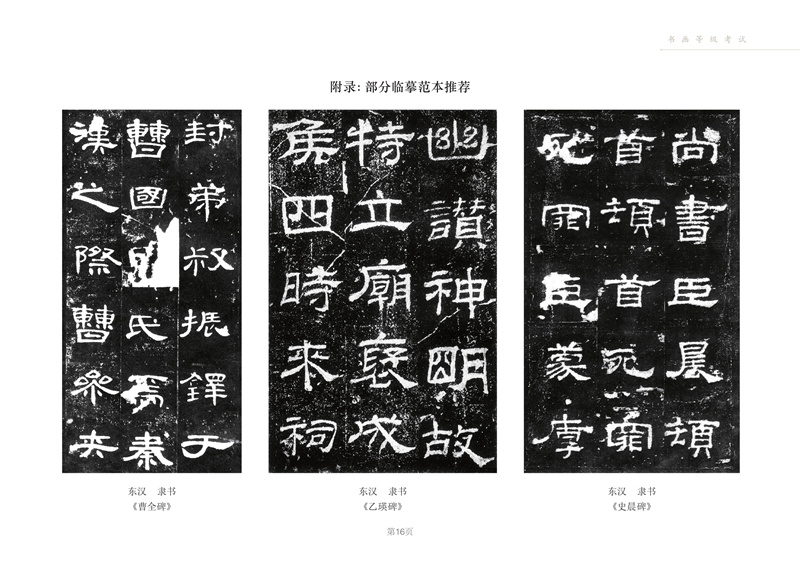 书画等级考试
附录：部分临摹范本推荐
封弟叔振鐸于
曹國氏焉秦
漢之際曹參夾
幽讚神明故
特立廟褒成
侯四時來祠
尚書臣晨頓
首頓首死罪
死罪臣蒙厚
东汉 隶书
《曹全碑》
东汉 隶书
《乙瑛碑》
东汉 隶书
《史晨碑》
第16页